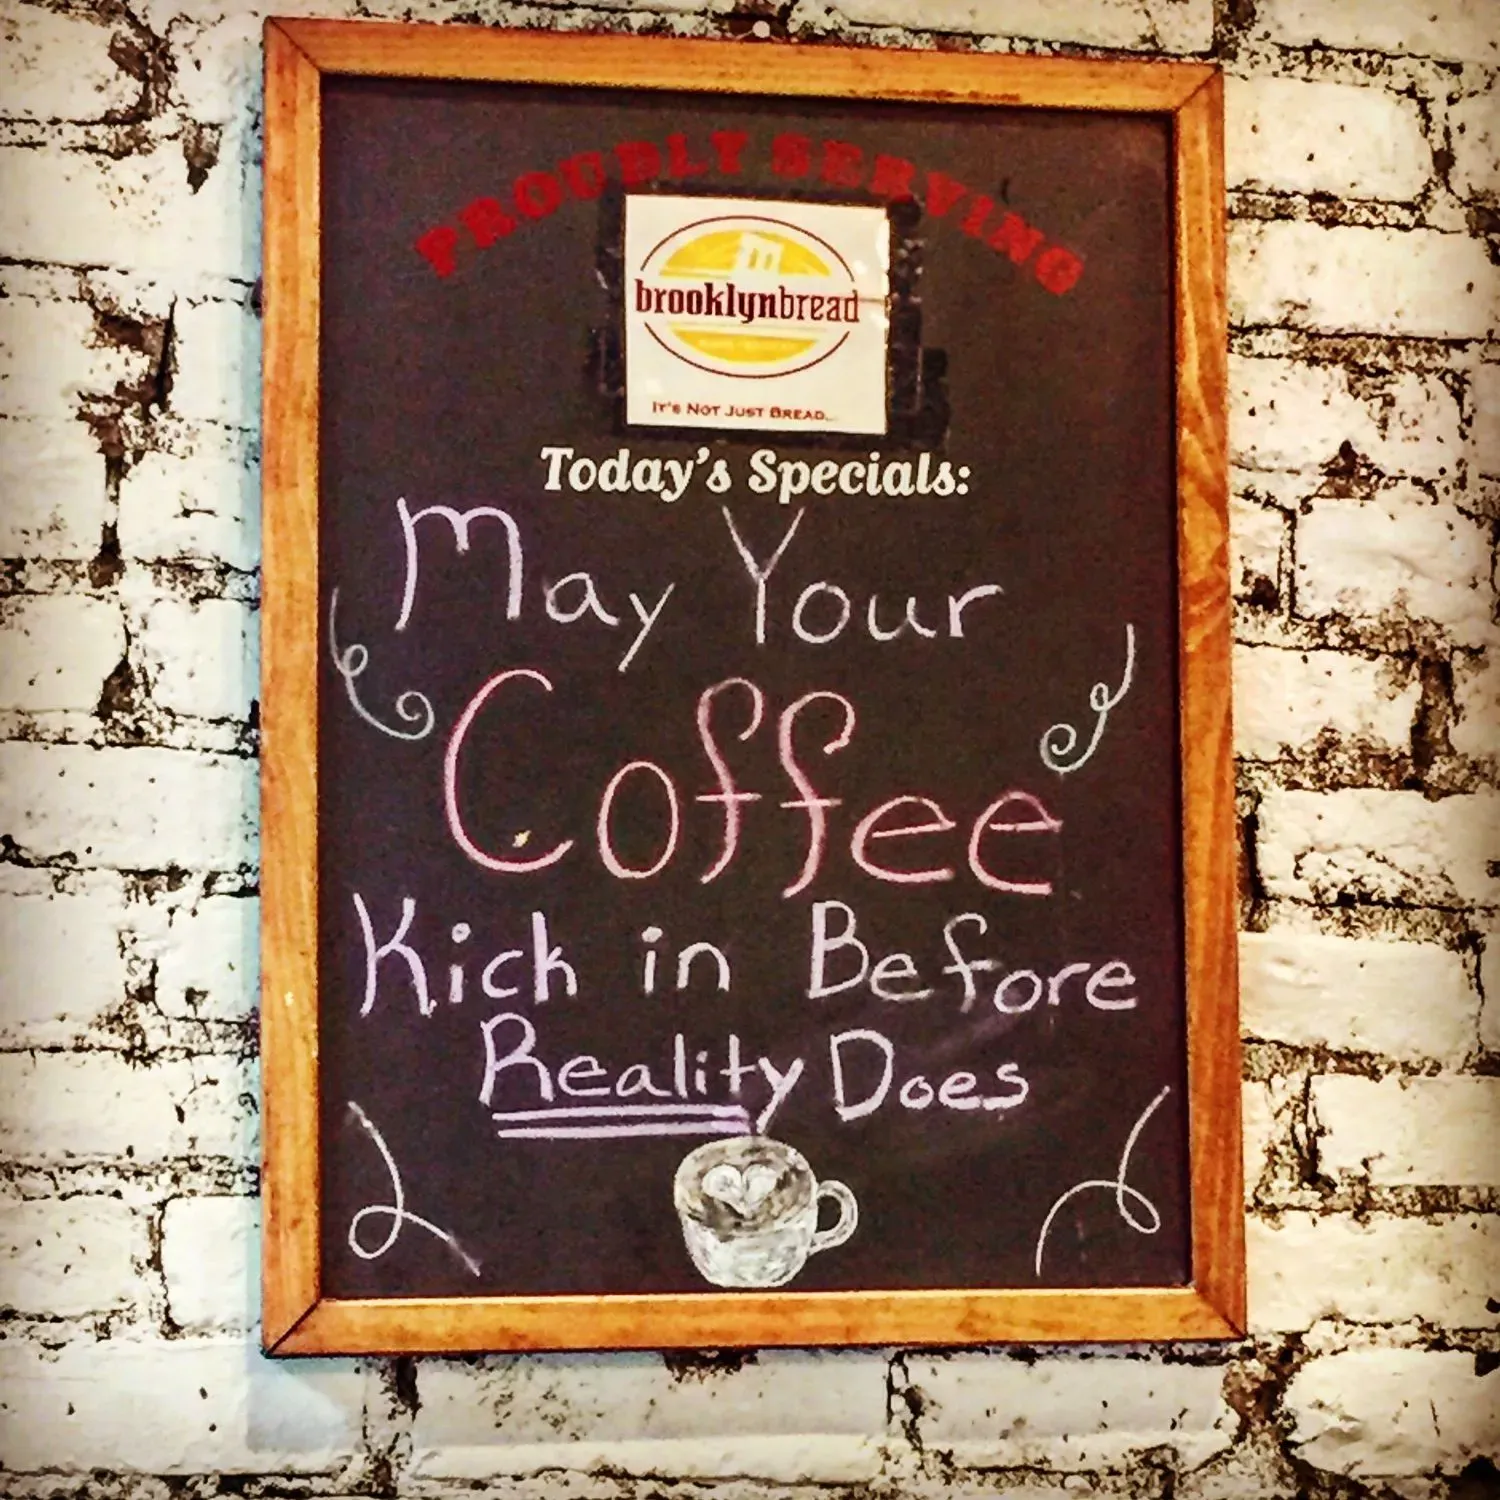 PROUDLY SERVING
brooklynbread
IT'S NOT JUST BREAD...
Today's Specials:
May Your
Coffee
Kick in Before
Reality Does